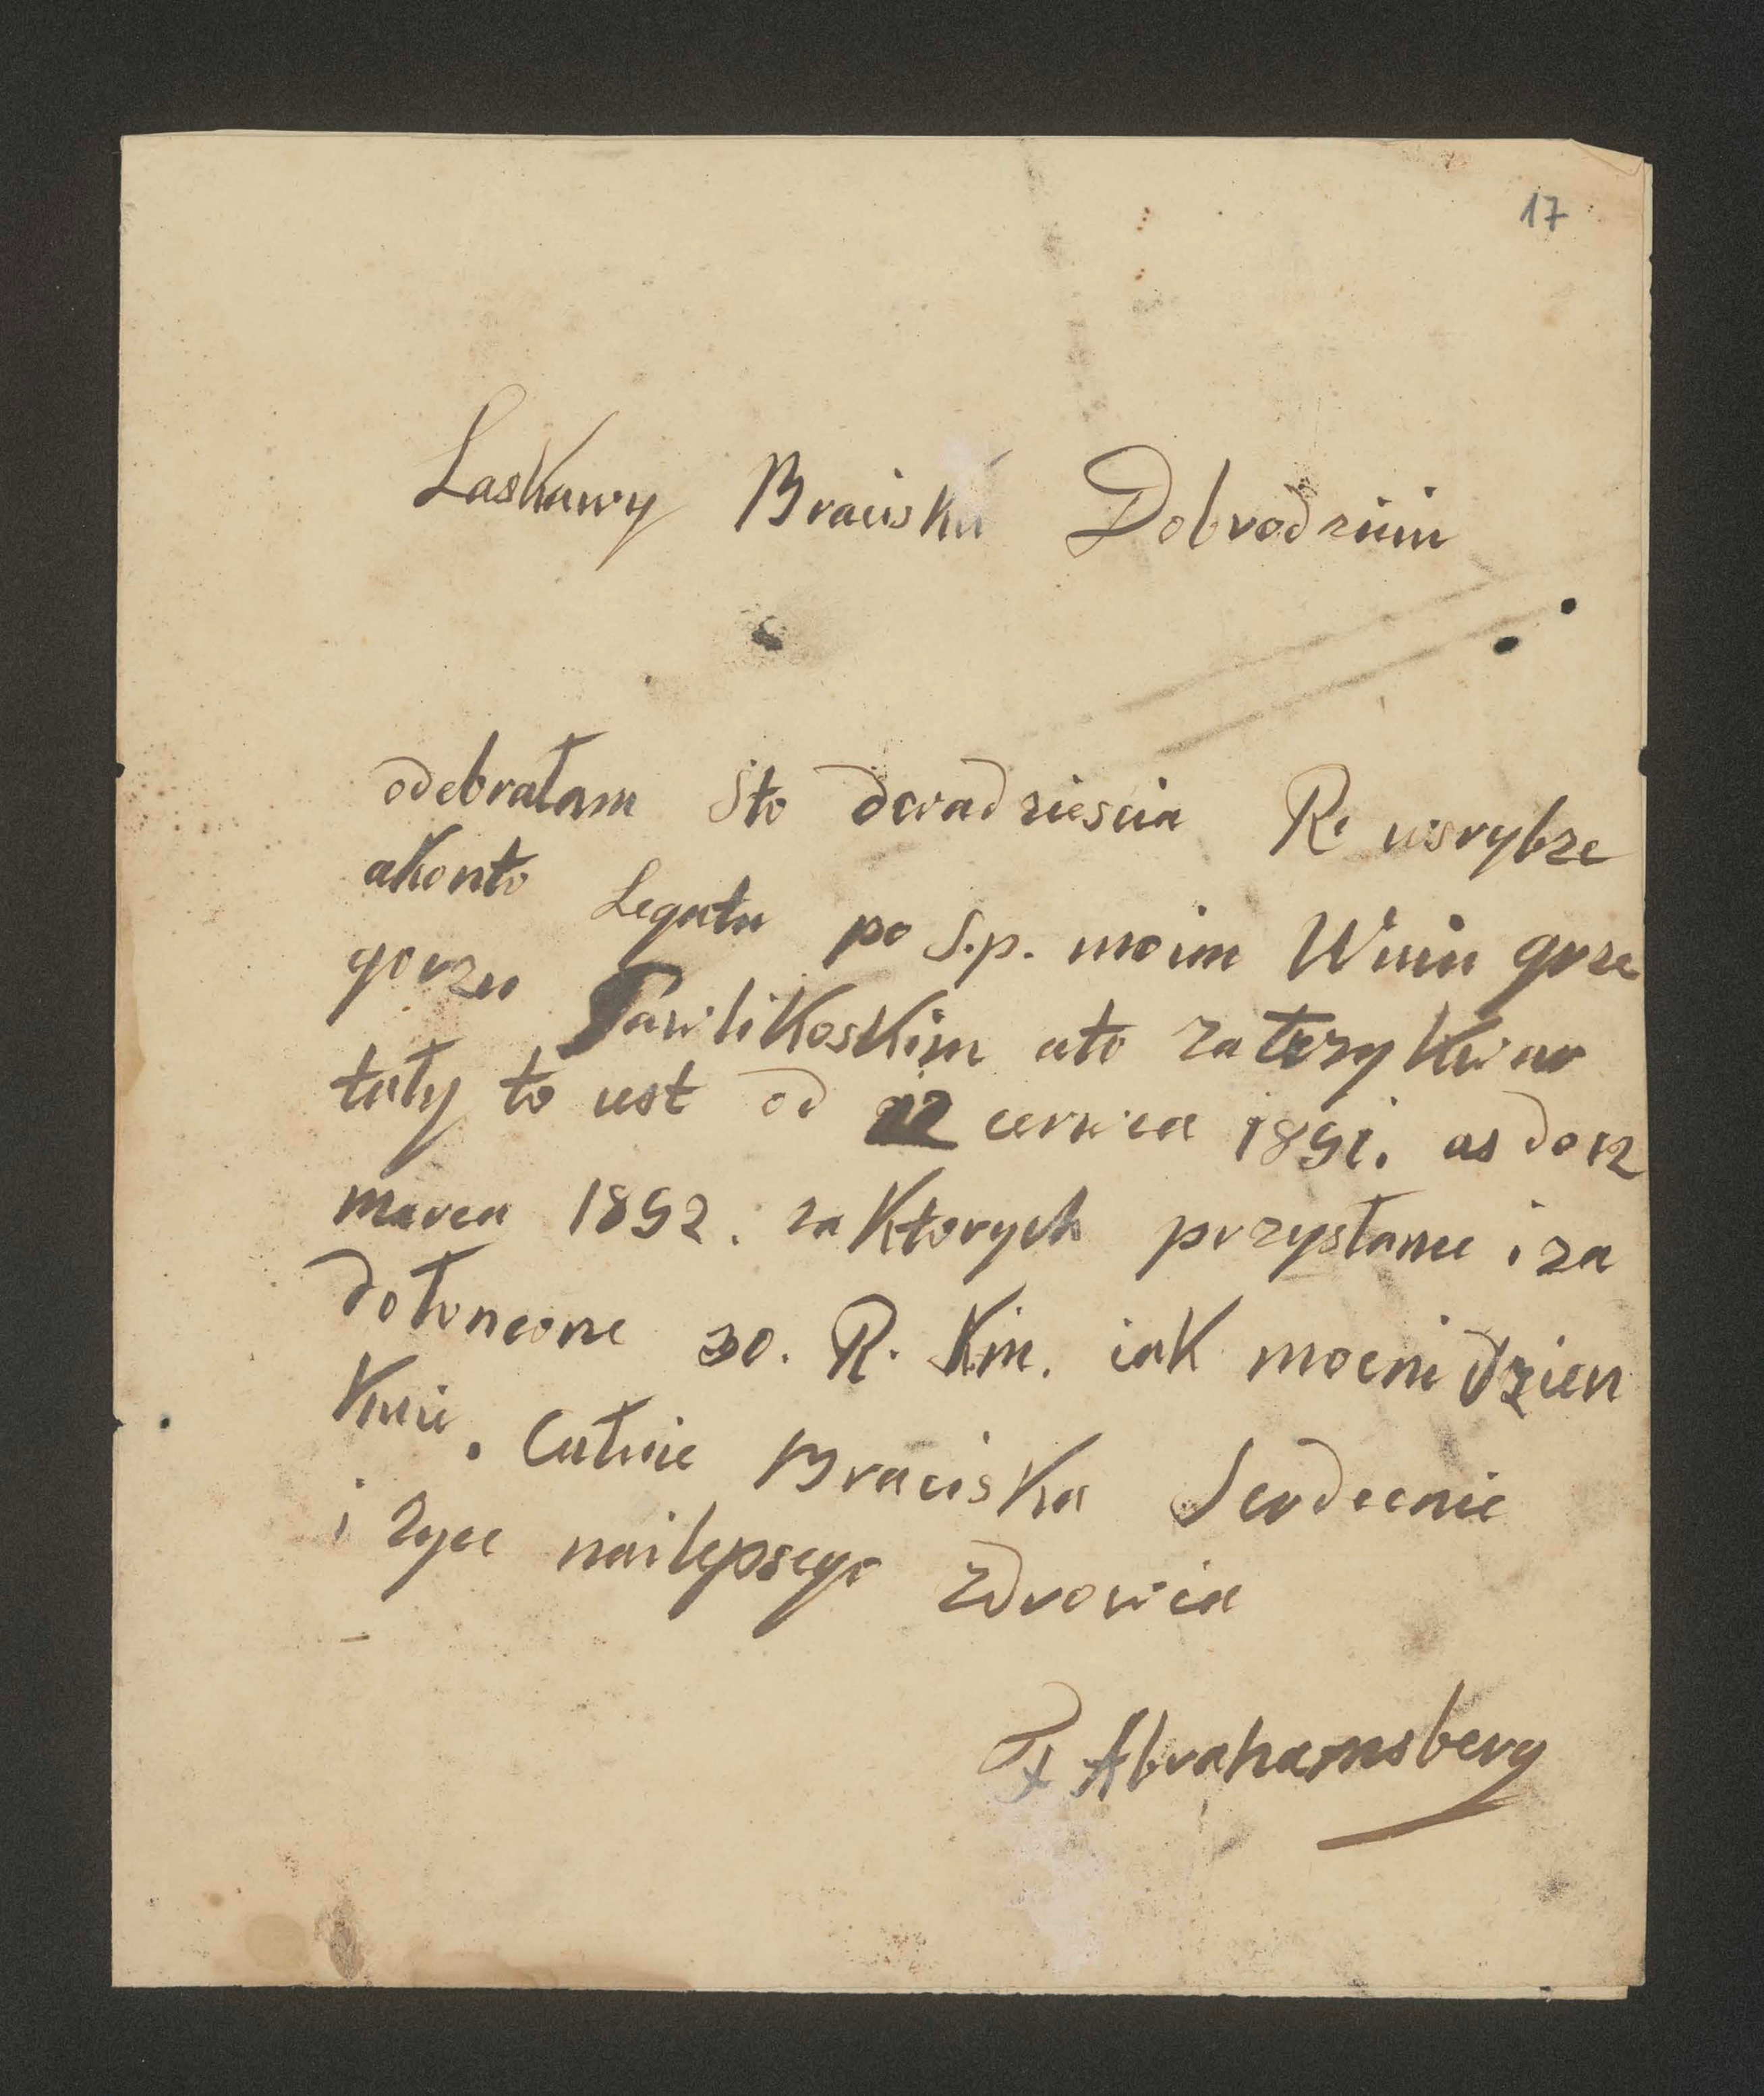 17
Laskawy Bracisku Dobrodzieiu
odebrałam Sto dwadziescia R. wsrybrze
akonto Legatu po S.p. moim Wuiu grze
gorzu Pawlikoskim ato za trzy kwar
tały to iest od 12 cerwca 1891. as do 12
marca 1892. za Ktorych przysłanie i za
dołoncone 30. R. Km. iak mocni dzien
Kuie. Całuie Braciska Serdecnie
i zyce nailepsego zdrowia
Abrahamsberg